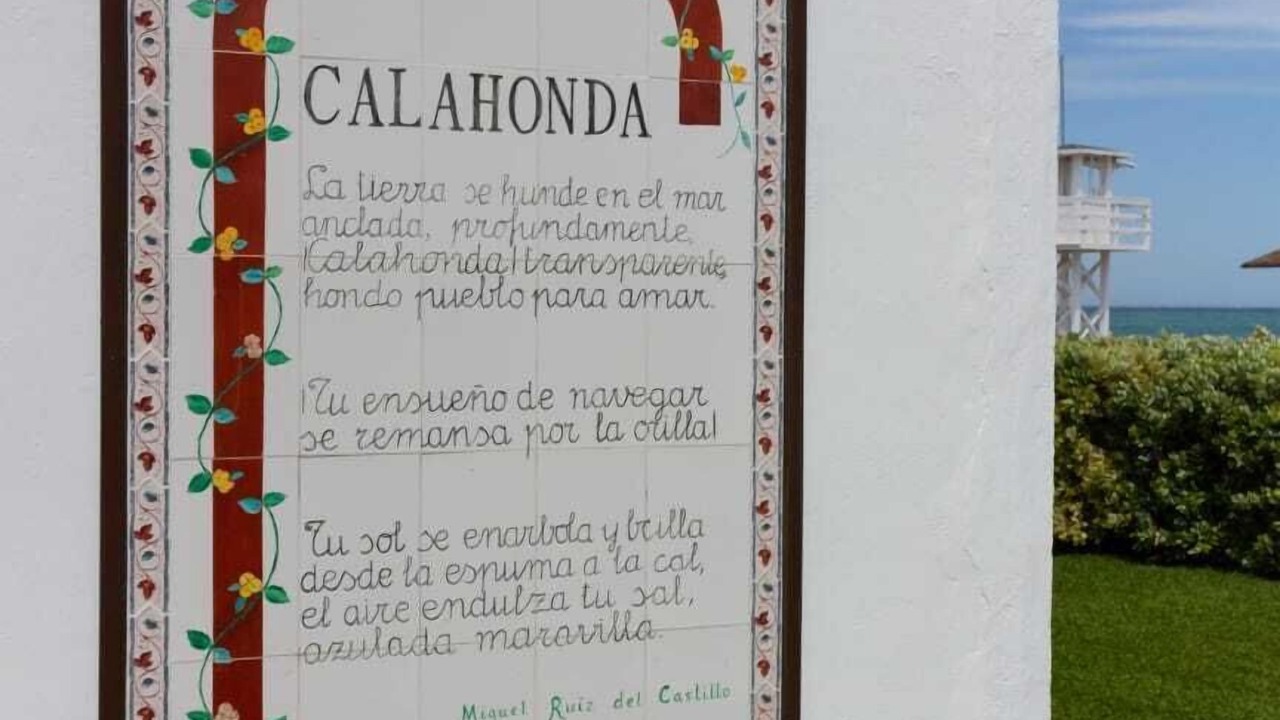 CALAHONDA
La tierra se hunde en el mar
anclada, profundamente,
¡Calahonda! transparente,
hondo pueblo para amar.
¡Tu ensueño de navegar
se remansa por la orilla!
Tu sol se enarbola y brilla
desde la espuma a la cal,
el aire endulza tu sal,
azulada maravilla.
Miguel Ruiz del Castillo